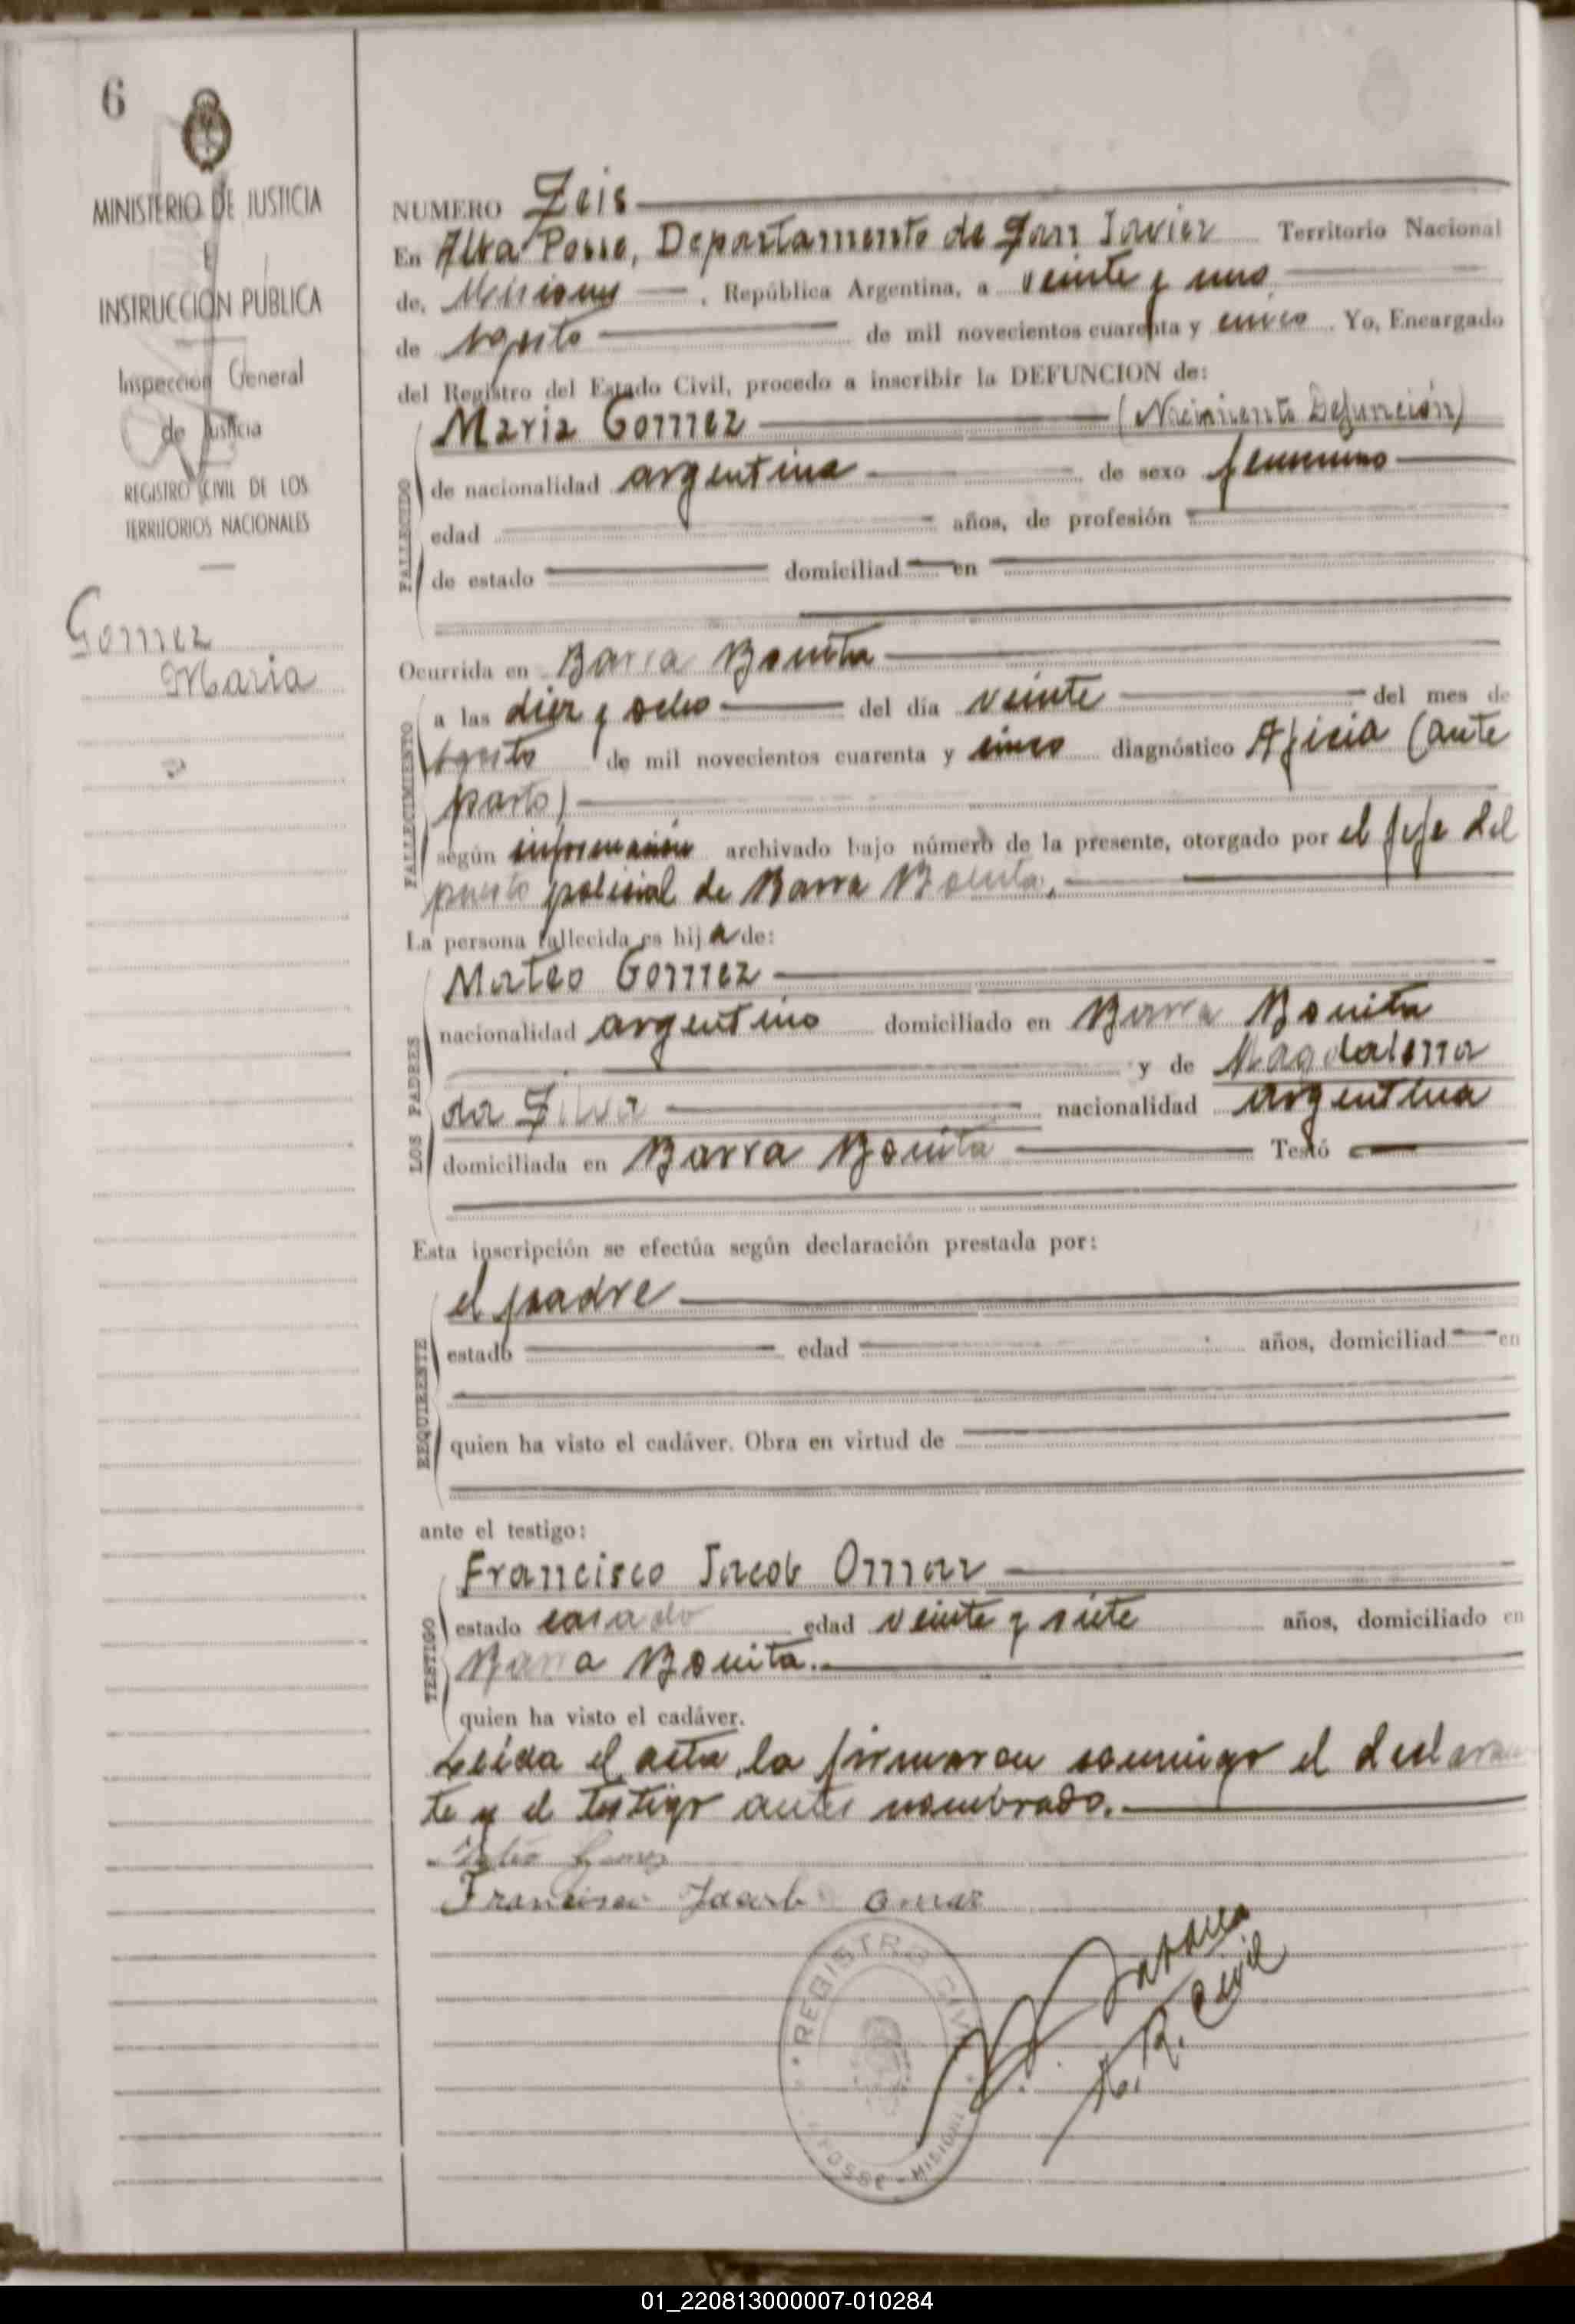 6
MINISTERIO DE JUSTICIA
E
INSTRUCCIÓN PUBLICA
Inspección General
de Justicia
REGISTRO CIVIL DE LOS
TERRITORIOS NACIONALES
Gomez
Maria
NUMERO Seis
En Alba Posse, Departamento de San Javier Territorio Nacional
de, Misiones, República Argentina, a veinte y uno
de agosto de mil novecientos cuarenta y cinco. Yo, Encargado
del Registro del Estado Civil, procedo a inscribir la DEFUNCION de:
Maria Gomez (Nacimiento Defunción)
de nacionalidad argentina de sexo femenino
edad años, de profesión
de estado domiciliad en
FALLECIDO
Ocurrida en Barra Bonita
a las diez y ocho del día veinte del mes de
agosto de mil novecientos cuarenta y cinco diagnóstico Aficia (ante
parto)
según información archivado bajo número de la presente, otorgado por el jefe del
puesto policial de Barra Bonita.
FALLECIMIENTO
La persona fallecida es hija de:
Mateo Gomez
nacionalidad argentino domiciliado en Barra Bonita
y de Magdalena
da Silva nacionalidad argentina
domiciliada en Barra Bonita Testó
LOS PADRES
Esta inscripción se efectúa según declaración prestada por:
el padre
estado edad años, domiciliad en
quien ha visto el cadáver. Obra en virtud de
REQUIRENTE
ante el testigo:
Francisco Jacob Omar
estado casado edad veinte y siete años, domiciliado en
Barra Bonita.
quien ha visto el cadáver.
TESTIGO
Leída el acta, la firmaron conmigo el declaran
te y el testigo antes nombrado.
Mateo Gomez
Francisco Jacob Omar
REGISTRO CIVIL
POSSE - MISIONES
R. Civil
01_220813000007-010284